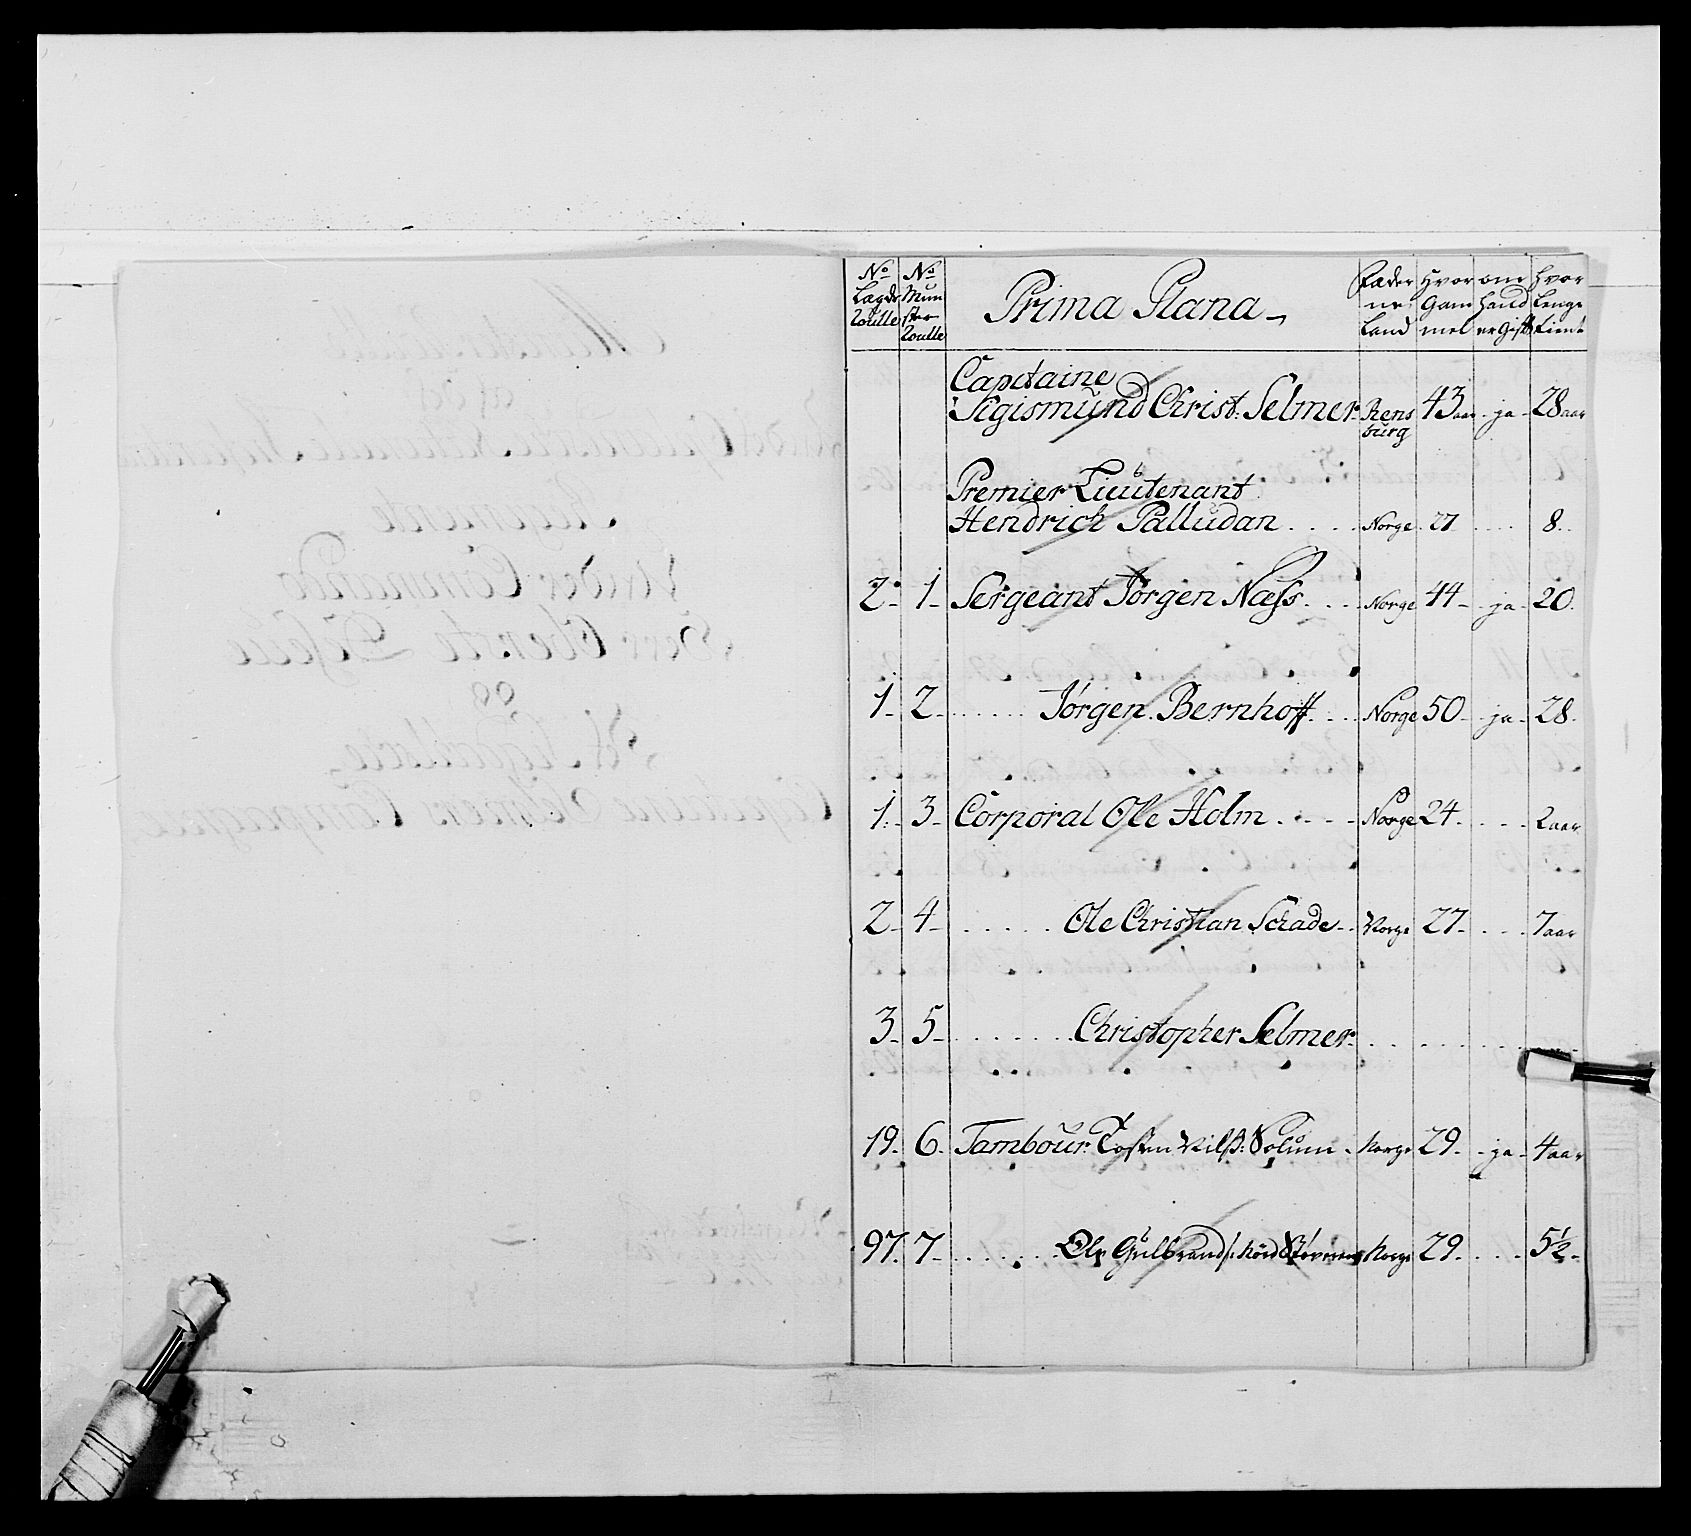 No No Prima Plana Fæder Hvor om Hvor
Lægds Mun ne Gam hand Lenge
Roulle ster Land mel er Gift tient
Roulle
Capitaine
Sigismund Christ: Selmer Rens 43 aar ja 28 aar
burg
Premier Lieutenant
Hendrich Palludan . . . . Norge 27 . . . . 8
2 1 Sergeant Jørgen Næss . . . Norge 44 ja 20
1 2 . . . . . . Jørgen Bernhoff . . . Norge 50 ja 28
1 3 Corporal Ole Holm . . . . Norge 24 . . . . 2 aar
2 4 . . . . . . Ole Christian Schade Norge 27 . . . . 7 aar
3 5 . . . . . . . Christopher Selmer . . . . . . . .
19 6 Tambour Tosten Nilss: Solum Norge 29 ja 4 aar
97 7 . . . . . . Ole Gulbrands: Nord Norge 29 . . . 5½